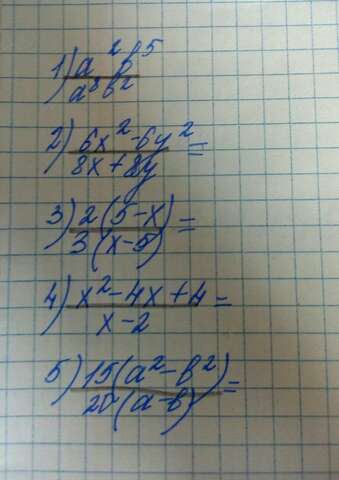 1) a² b⁵
a⁸ b²
2) 6x² - 6y² =
8x + 8y
3) 2(5-x) =
3(x-5)
4) x² - 4x + 4 =
x - 2
5) 15(a² - b²) =
20(a - b)